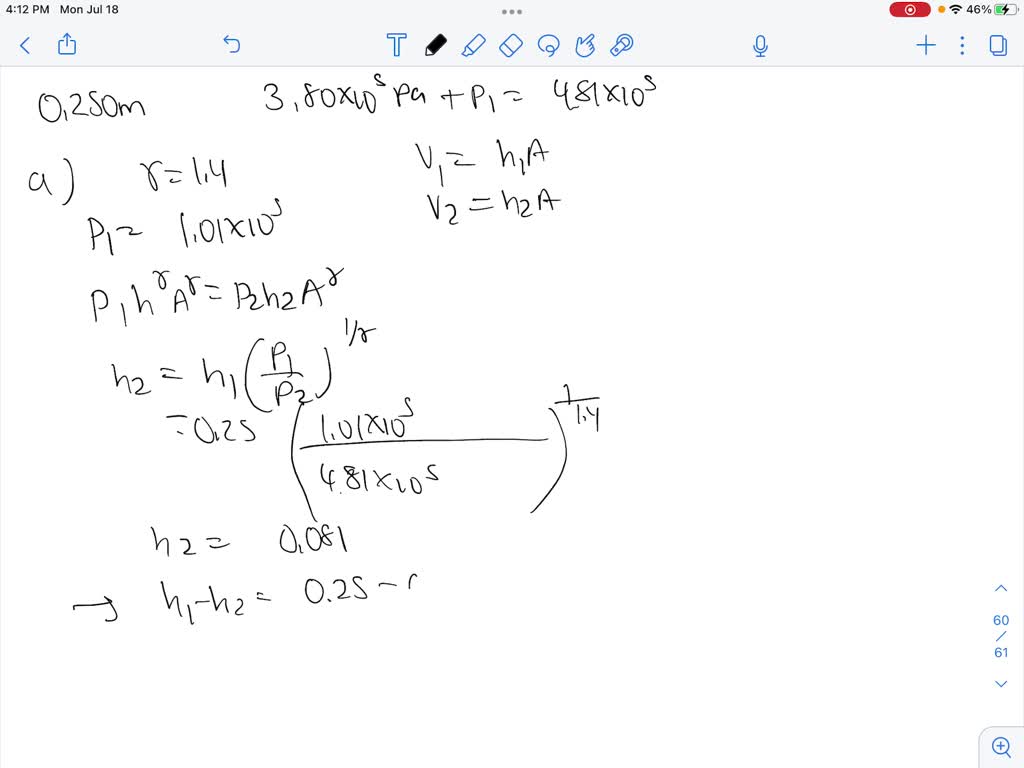 4:12 PM Mon Jul 18
46%
0.250m 3.80×10⁵ Pa + P₁ = 4.81×10⁵
a) γ = 1.4
V₁ = h₁A
V₂ = h₂A
P₁ = 1.01×10⁵
P₁h^γ A^γ = P₂h₂A^γ
h₂ = h₁(P₁/P₂)^1/γ
= 0.25 (1.01×10⁵/4.81×10⁵)^1/1.4
h₂ = 0.081
→ h₁-h₂ = 0.25 -
60
/
61